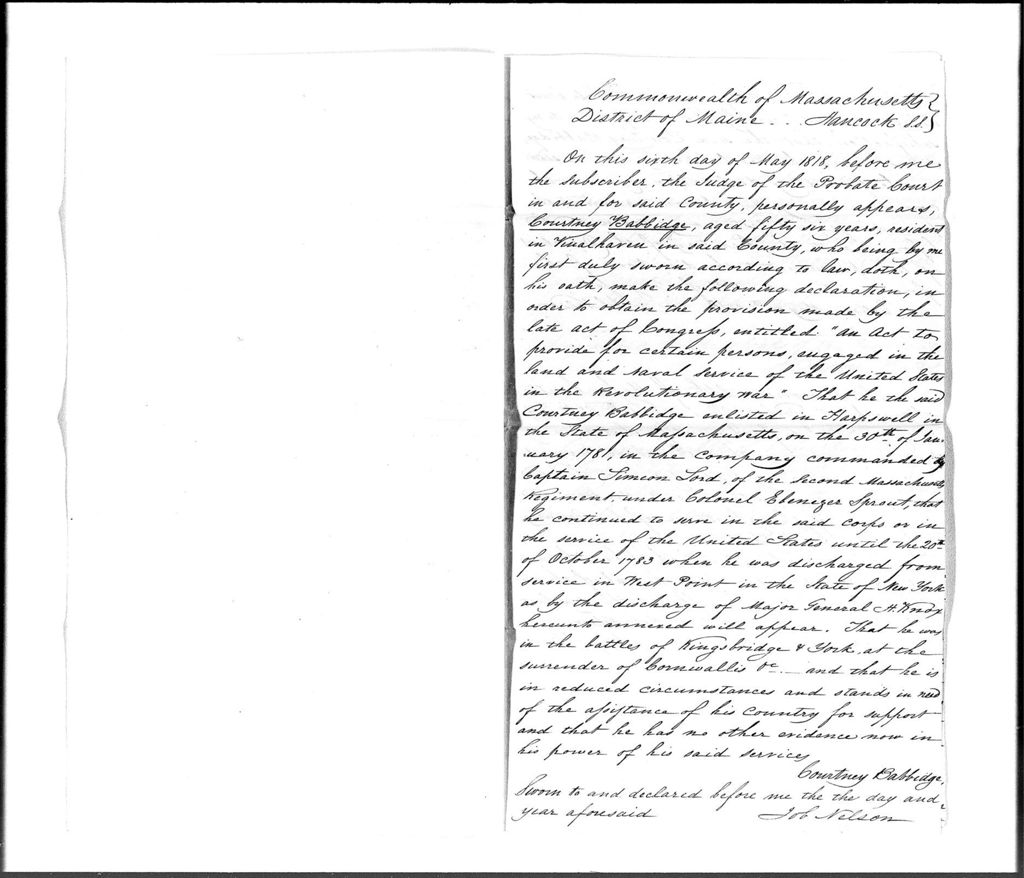 Commonwealth of Massachusetts }
District of Maine . . . Hancock S.S. }
On this sixth day of May 1818, before me
the subscriber, the Judge of the Probate Court
in and for said County, personally appears,
Courtney Babbidge, aged fifty six years, resident
in Vinalhaven in said County, who being by me
first duly sworn according to law, doth, on
his oath, make the following declaration, in
order to obtain the provision made by the
late act of Congress, entitled "an Act to
provide for certain persons, engaged in the
land and Naval Service of the United States
in the Revolutionary War" That he the said
Courtney Babbidge enlisted in Harpswell in
the State of Massachusetts, on the 30th of Jan-
uary 1781, in the company commanded by
Captain Simeon Lord, of the Second Massachusetts
Regiment, under Colonel Ebenezer Sprout, that
he continued to serve in the said corps or in
the service of the United States until the 20th
of October 1783 when he was discharged from
service in West Point in the State of New York
as by the discharge of Major General H. Knox
hereunto annexed will appear. That he was
in the battles of Kingsbridge & York, at the
surrender of Cornwallis &c. — and that he is
in reduced circumstances and stands in need
of the assistance of his country for support
and that he has no other evidence now in
his power of his said services
Courtney Babbidge,
Sworn to and declared before me the the day and
year aforesaid Job Nelson